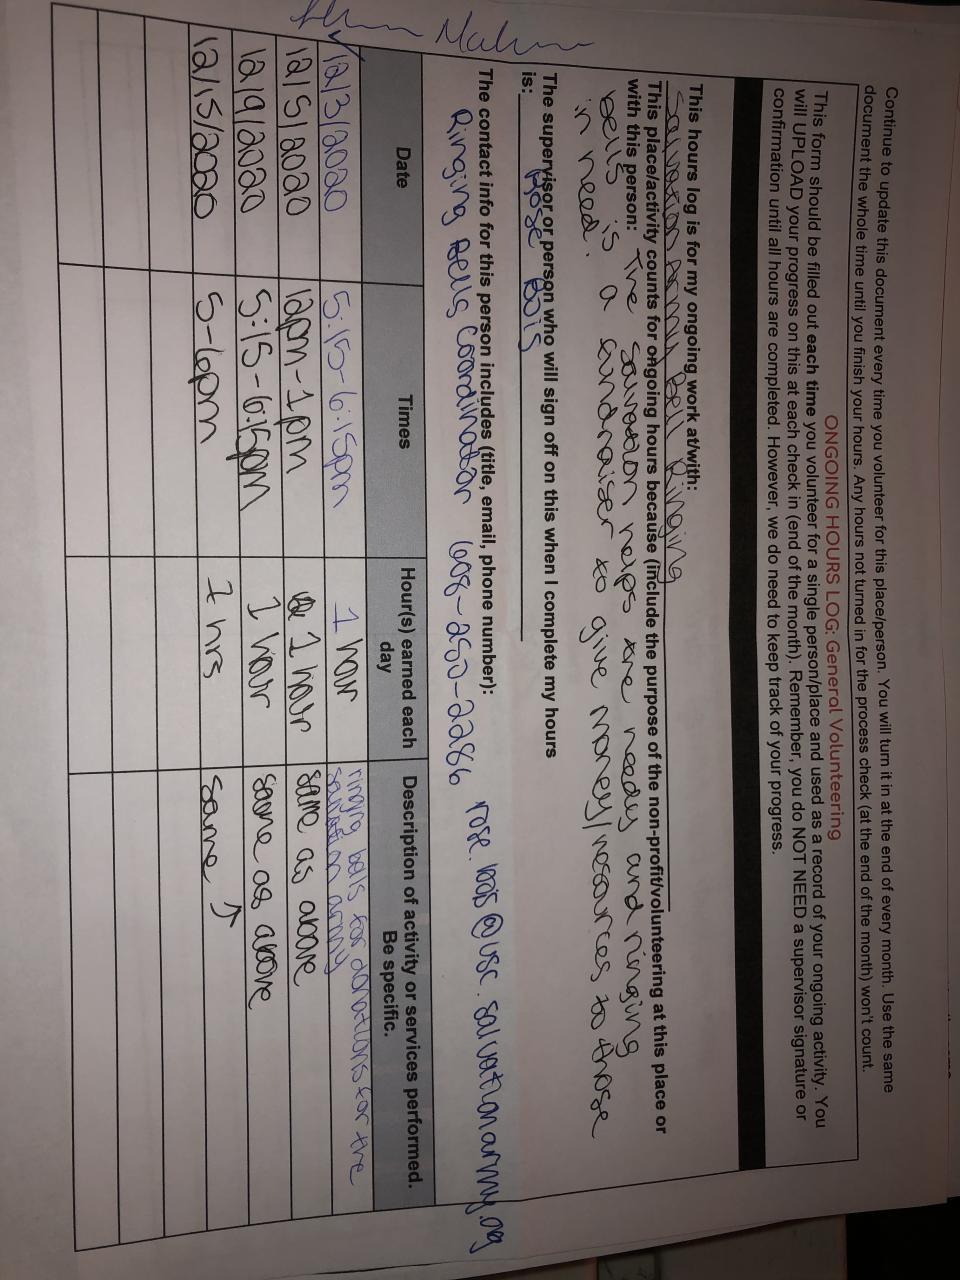 Continue to update this document every time you volunteer for this place/person. You will turn it in at the end of every month. Use the same
document the whole time until you finish your hours. Any hours not turned in for the process check (at the end of the month) won't count.
ONGOING HOURS LOG: General Volunteering
This form should be filled out each time you volunteer for a single person/place and used as a record of your ongoing activity. You
will UPLOAD your progress on this at each check in (end of the month). Remember, you do NOT NEED a supervisor signature or
confirmation until all hours are completed. However, we do need to keep track of your progress.
This hours log is for my ongoing work at/with:
Salvation Army Bell Ringing
This place/activity counts for ongoing hours because (include the purpose of the non-profit/volunteering at this place or
with this person: The salvation helps the needy and ringing
bells is a fundraiser to give money/resources to those
in need.
The supervisor or person who will sign off on this when I complete my hours
is: Rose Bois
The contact info for this person includes (title, email, phone number):
Ringing Bells Coordinator 608-250-2286 rose.bois@usc.salvationarmy.org
Date Times Hour(s) earned each day Description of activity or services performed. Be specific.
12/3/2020 5:15-6:15pm 1 hour ringing bells for donations for the salvation army
12/5/2020 12pm-1pm 1 hour same as above
12/9/2020 5:15-6:15pm 1 hour same as above
12/15/2020 5-6pm 1 hrs same ↑